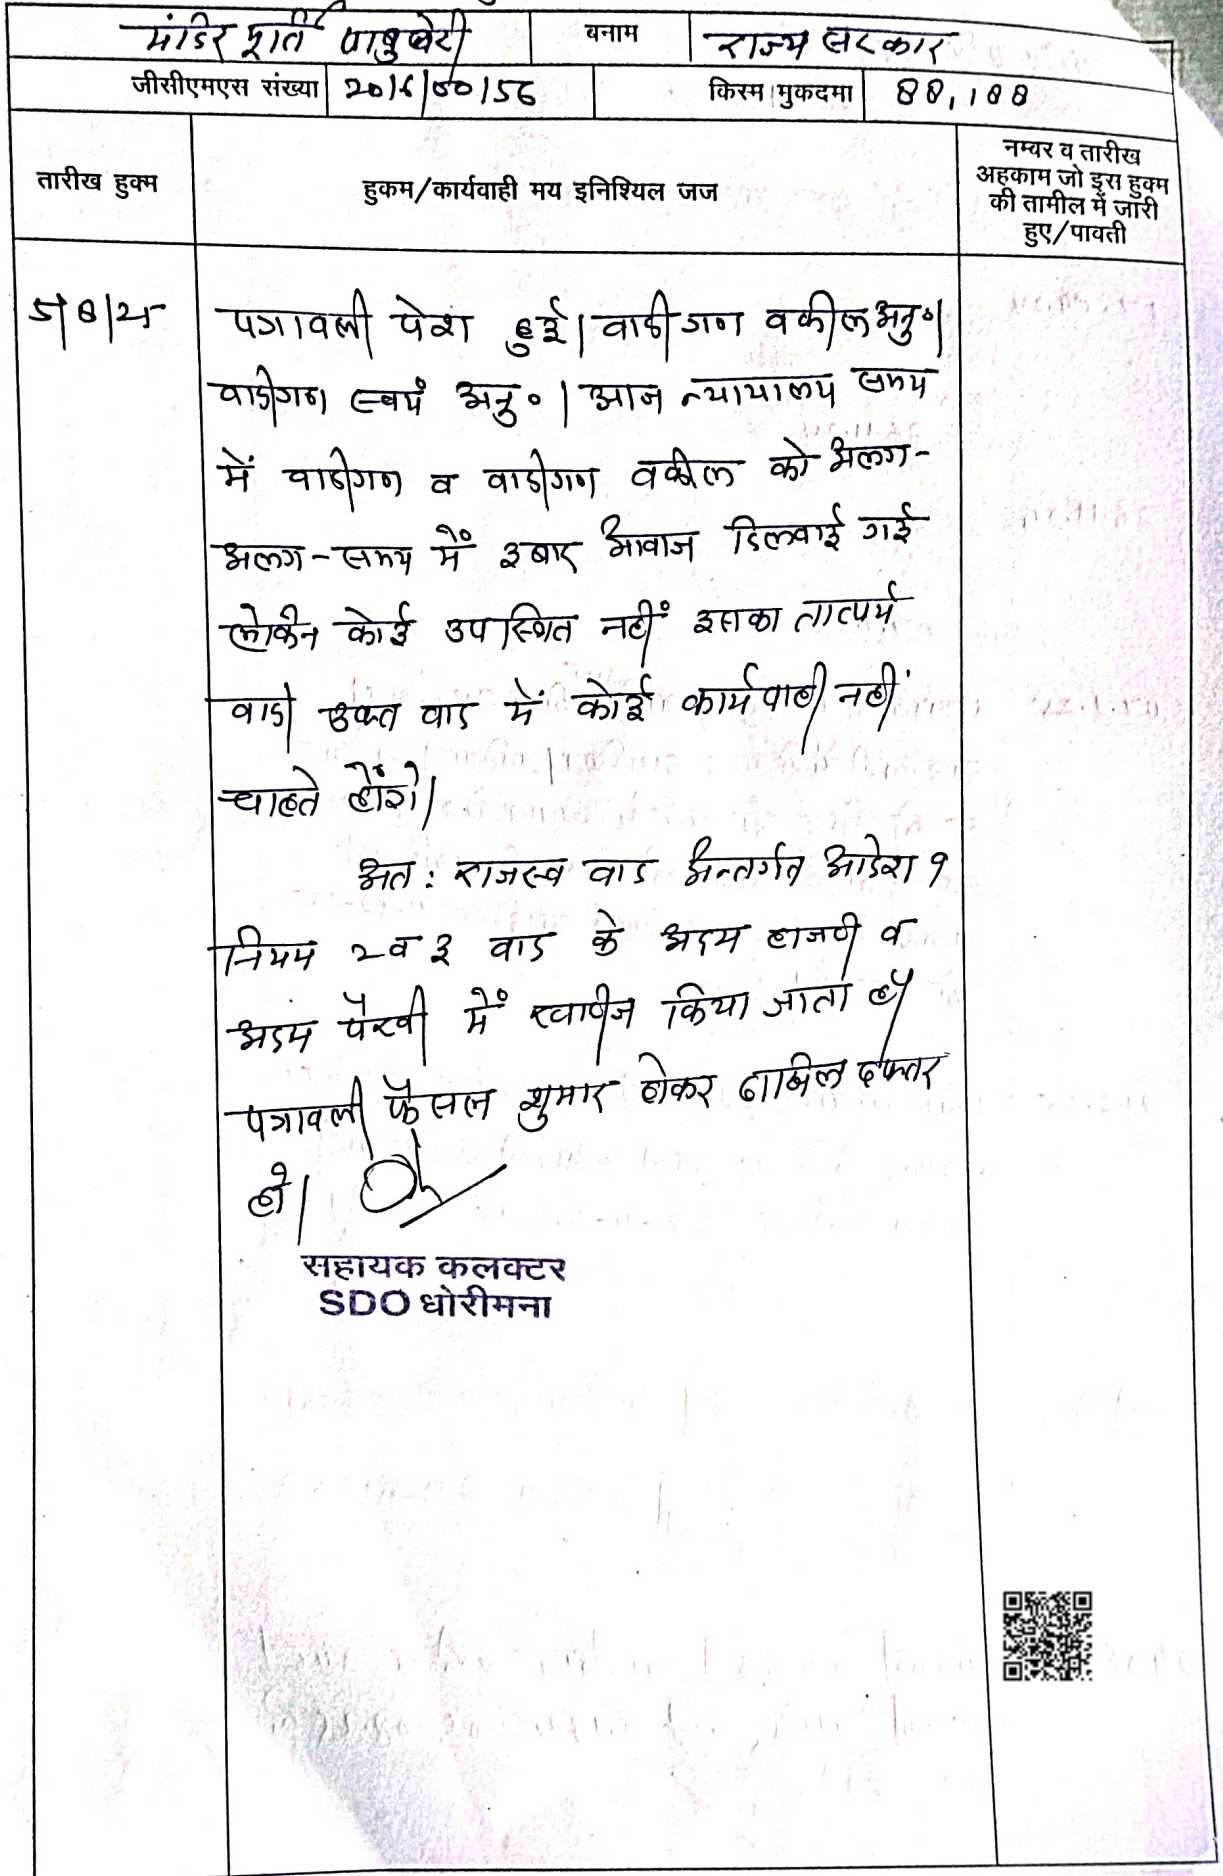 मंदिर मूर्ति पाबुबेरी बनाम राज्य सरकार
जीसीएमएस संख्या 2016/00156 किस्म मुकदमा 88,188
तारीख हुक्म
हुकम/कार्यवाही मय इनिश्यिल जज
नम्वर व तारीख
अहकाम जो इस हुक्म
की तामील में जारी
हुए/पावती
5/8/25 पत्रावली पेश हुई। वादीगण वकील अनु०।
वादीगण स्वयं अनु०। आज न्यायालय समय
में वादीगण व वादीगण वकील को अलग-
अलग-समय में 3 बार आवाज दिलवाई गई
लेकिन कोई उपस्थित नहीं इसका तात्पर्य
वादी उक्त वाद में कोई कार्यवाही नहीं
चाहते होंगे।
अत: राजस्व वाद अन्तर्गत आदेश 9
नियम 2 व 3 वाद के अदम हाजरी व
अदम पैरवी में खारीज किया जाता है
पत्रावली फैसल शुमार होकर दाखिल दफ्तर
हो।
सहायक कलक्टर
SDO धोरीमना